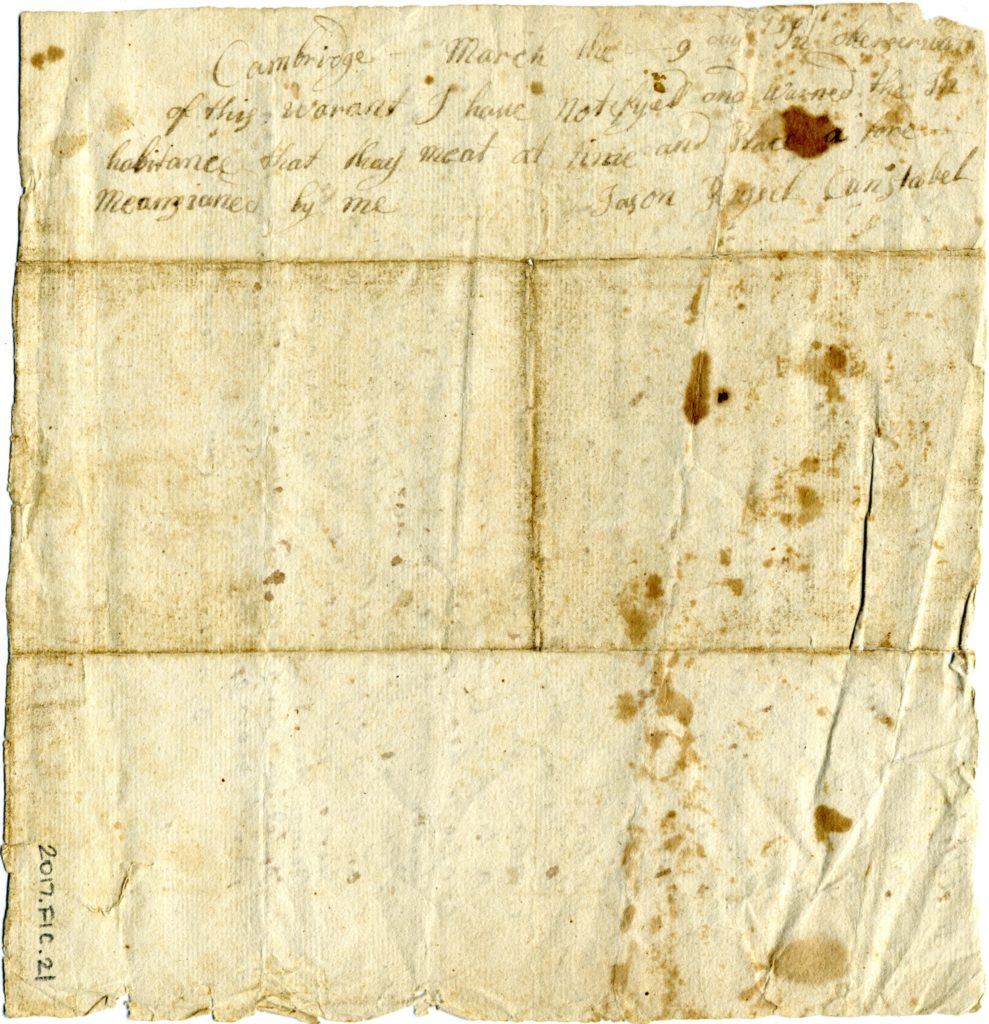 Cambridge - March the 9 day 1750/1 In obserervan
of this warant I have Notefyed and warned the In
habitance that thay meat at time and Place a fore
Meanzianed by me Jason Russel Cunstabel
2017.FIC.21